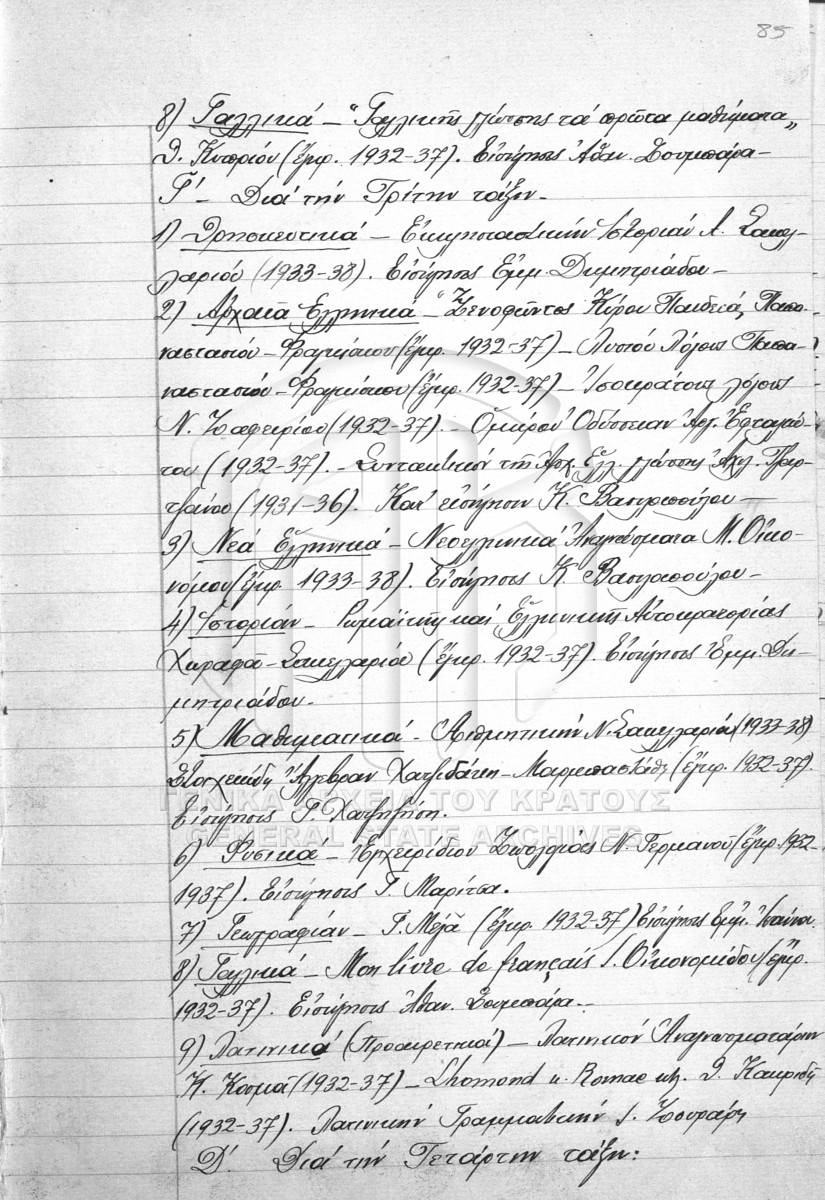 85
8) Γαλλικά – "Γαλλικῆς γλώσσης τά πρῶτα μαθήματα"
Θ. Κυπρίου (ἔγκρ. 1932-37). Εἰσήγησις Ἀθαν. Ζουμπάρα –
Γ' – Διά τήν Τρίτην τάξιν –
1) Θρησκευτικά – Ἐκκλησιαστικήν Ἱστορίαν Λ. Σακελ-
λαρίου (1933-38). Εἰσήγησις Ἐμμ. Δημητριάδου –
2) Ἀρχαῖα Ἑλληνικά – "Ξενοφῶντος Κύρου Παιδεία, Παπα-
ναστασίου – Φραγκίσκου (ἔγκρ. 1932-37) – Λυσίου Λόγοις Παπα-
ναστασίου – Φραγκίσκου (ἔγκρ. 1932-37) – Ἰσοκράτους λόγοις
Ν. Ζαφειρίου (1932-37). – Ὁμήρου Ὀδύσσειαν Ἀργ. Ἐφταλιώ-
του (1932-37). – Συντακτικόν τῆς Ἀρχ. Ἑλλ. γλώσσης Ἀχιλ. Τζαρ-
τζάνου (1931-36). Κατ' εἰσήγησιν Κ. Βασιλοπούλου –
3) Νέα Ἑλληνικά – Νεοελληνικά Ἀναγνώσματα Μ. Οἰκο-
νόμου (ἔγκρ. 1933-38). Εἰσήγησις Κ. Βασιλοπούλου –
4) Ἱστορίαν – Ρωμαϊκῆς καί Ἑλληνικῆς Αὐτοκρατορίας
Χωραφᾶ – Σακελλαρίου (ἔγκρ. 1932-37). Εἰσήγησις Ἐμμ. Δη-
μητριάδου.
5) Μαθηματικά – Ἀριθμητικήν Ν. Σακελλαρίου (1933-38)
Στοιχειώδη Ἄλγεβραν Χατζιδάκη – Μαρμπαστάθη (ἔγκρ. 1932-37).
Εἰσήγησις Γ. Χατζηζήση.
6) Φυσικά – Ἐγχειρίδιον Ζωολογίας Ν. Γερμανοῦ (ἔγκρ. 1932-
1937). Εἰσήγησις Γ. Μαρίτσα.
7) Γεωγραφίαν – Γ. Μέγα (ἔγκρ. 1932-37) Εἰσήγησις Ἐμμ.
8) Γαλλικά – Mon livre de français Ι. Οἰκονομίδου (ἔγκρ.
1932-37). Εἰσήγησις Ἀθαν. Ζουμπάρα –
9) Λατινικά (Προαιρετικά) – Λατινικόν Ἀναγνωσματάριον
Κ. Κοσμᾶ (1932-37) – Lhomond u. Romae κλ. Θ. Κακριδῆ
(1932-37). Λατινικήν Γραμματικήν Ι. Ζουράρη
Δ'. Διά τήν Τετάρτην τάξιν:
ΓΕΝΙΚΑ ΑΡΧΕΙΑ ΤΟΥ ΚΡΑΤΟΥΣ
GENERAL STATE ARCHIVES